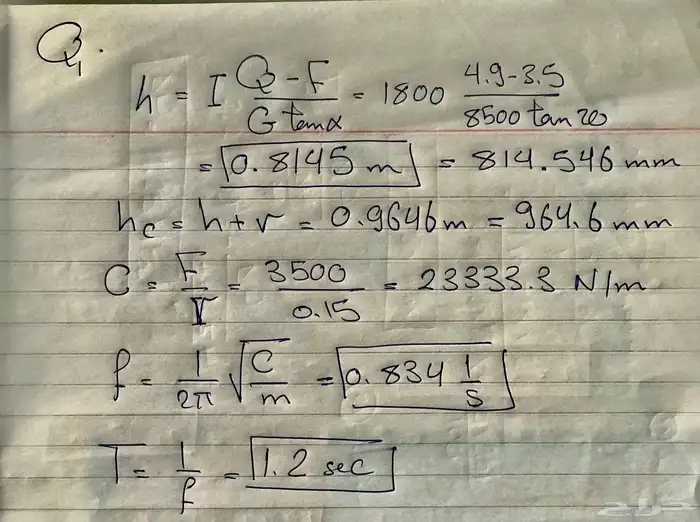 Q1.
h = I (Q - F)/(G tanα) = 1800 (4.9 - 3.5)/(8500 tan 20)
= 0.8145 m = 814.546 mm
hc = h + r = 0.9646 m = 964.6 mm
C = F/r = 3500/0.15 = 23333.3 N/m
f = 1/2π √(C/m) = 0.834 1/s
T = 1/f = 1.2 sec
حراج